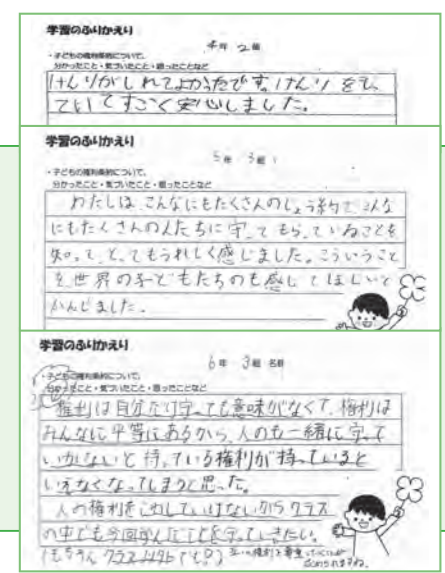 学習のふりかえり
4年 2組
・子どもの権利条約について、
分かったこと・気づいたこと・思ったことなど
けんりがしれてよかったです。けんりをも
っていてすごく安心しました。
学習のふりかえり
5年 3組
・子どもの権利条約について、
分かったこと・気づいたこと・思ったことなど
わたしは、こんなにもたくさんのじょう約で、こんな
にもたくさんの人たちに守ってもらっていることを
知って、とってもうれしく感じました。こういうこと
を世界の子どもたちのも感じてほしいと
かんじました。
学習のふりかえり
6年 3組 名前
・子どもの権利条約について、
分かったこと・気づいたこと・思ったことなど
権利は自分だけ守っても意味がなくて、権利は
みんなに平等にあるから、人のも一緒に守って
いかないと持っている権利が持っていると
いえなくなってしまうと思った。
人の権利をこわしていけないからクラス
の中でも今回学んだことを守っていきたい。
(もちろんクラス以外でも。)